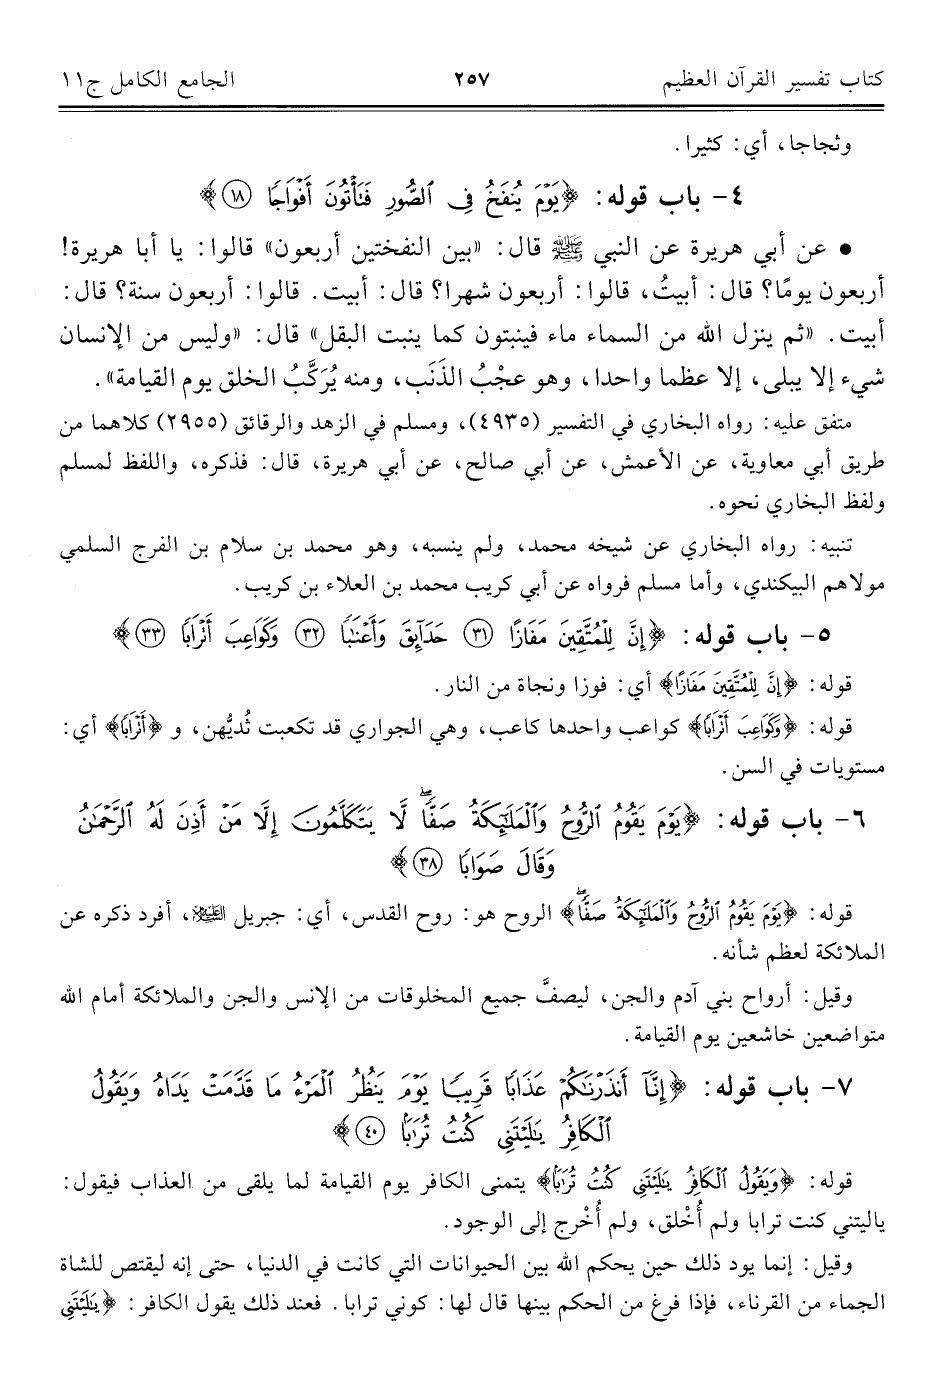 كتاب تفسير القرآن العظيم ٢٥٧ الجامع الكامل ج١١
وثجاجا، أي: كثيرا.
٤- باب قوله: ﴿يَوْمَ يُنفَخُ فِي ٱلصُّورِ فَتَأْتُونَ أَفْوَاجًا ١٨﴾
• عن أبي هريرة عن النبي ﷺ قال: «بين النفختين أربعون» قالوا: يا أبا هريرة!
أربعون يومًا؟ قال: أبيتُ، قالوا: أربعون شهرا؟ قال: أبيت. قالوا: أربعون سنة؟ قال:
أبيت. «ثم ينزل الله من السماء ماء فينبتون كما ينبت البقل» قال: «وليس من الإنسان
شيء إلا يبلى، إلا عظما واحدا، وهو عجْبُ الذَنَب، ومنه يُرَكَّبُ الخلق يوم القيامة».
متفق عليه: رواه البخاري في التفسير (٤٩٣٥)، ومسلم في الزهد والرقائق (٢٩٥٥) كلاهما من
طريق أبي معاوية، عن الأعمش، عن أبي صالح، عن أبي هريرة، قال: فذكره، واللفظ لمسلم
ولفظ البخاري نحوه.
تنبيه: رواه البخاري عن شيخه محمد، ولم ينسبه، وهو محمد بن سلام بن الفرج السلمي
مولاهم البيكندي، وأما مسلم فرواه عن أبي كريب محمد بن العلاء بن كريب.
٥- باب قوله: ﴿إِنَّ لِلْمُتَّقِينَ مَفَازًا ٣١ حَدَآئِقَ وَأَعْنَٰبًا ٣٢ وَكَوَاعِبَ أَتْرَابًا ٣٣﴾
قوله: ﴿إِنَّ لِلْمُتَّقِينَ مَفَازًا﴾ أي: فوزا ونجاة من النار.
قوله: ﴿وَكَوَاعِبَ أَتْرَابًا﴾ كواعب واحدها كاعب، وهي الجواري قد تكعبت ثُديُّهن، و ﴿أَتْرَابًا﴾ أي:
مستويات في السن.
٦- باب قوله: ﴿يَوْمَ يَقُومُ ٱلرُّوحُ وَٱلْمَلَٰٓئِكَةُ صَفًّاۖ لَّا يَتَكَلَّمُونَ إِلَّا مَنْ أَذِنَ لَهُ ٱلرَّحْمَٰنُ
وَقَالَ صَوَابًا ٣٨﴾
قوله: ﴿يَوْمَ يَقُومُ ٱلرُّوحُ وَٱلْمَلَٰٓئِكَةُ صَفًّاۖ﴾ الروح هو: روح القدس، أي: جبريل عليه السلام، أفرد ذكره عن
الملائكة لعظم شأنه.
وقيل: أرواح بني آدم والجن، ليصفَّ جميع المخلوقات من الإنس والجن والملائكة أمام الله
متواضعين خاشعين يوم القيامة.
٧- باب قوله: ﴿إِنَّآ أَنذَرْنَٰكُمْ عَذَابًا قَرِيبًا يَوْمَ يَنظُرُ ٱلْمَرْءُ مَا قَدَّمَتْ يَدَاهُ وَيَقُولُ
ٱلْكَافِرُ يَٰلَيْتَنِي كُنتُ تُرَٰبًا ٤٠﴾
قوله: ﴿وَيَقُولُ ٱلْكَافِرُ يَٰلَيْتَنِي كُنتُ تُرَٰبًا﴾ يتمنى الكافر يوم القيامة لما يلقى من العذاب فيقول:
ياليتني كنت ترابا ولم أُخْلق، ولم أُخْرج إلى الوجود.
وقيل: إنما يود ذلك حين يحكم الله بين الحيوانات التي كانت في الدنيا، حتى إنه ليقتص للشاة
الجماء من القرناء، فإذا فرغ من الحكم بينها قال لها: كوني ترابا. فعند ذلك يقول الكافر: ﴿يَٰلَيْتَنِي